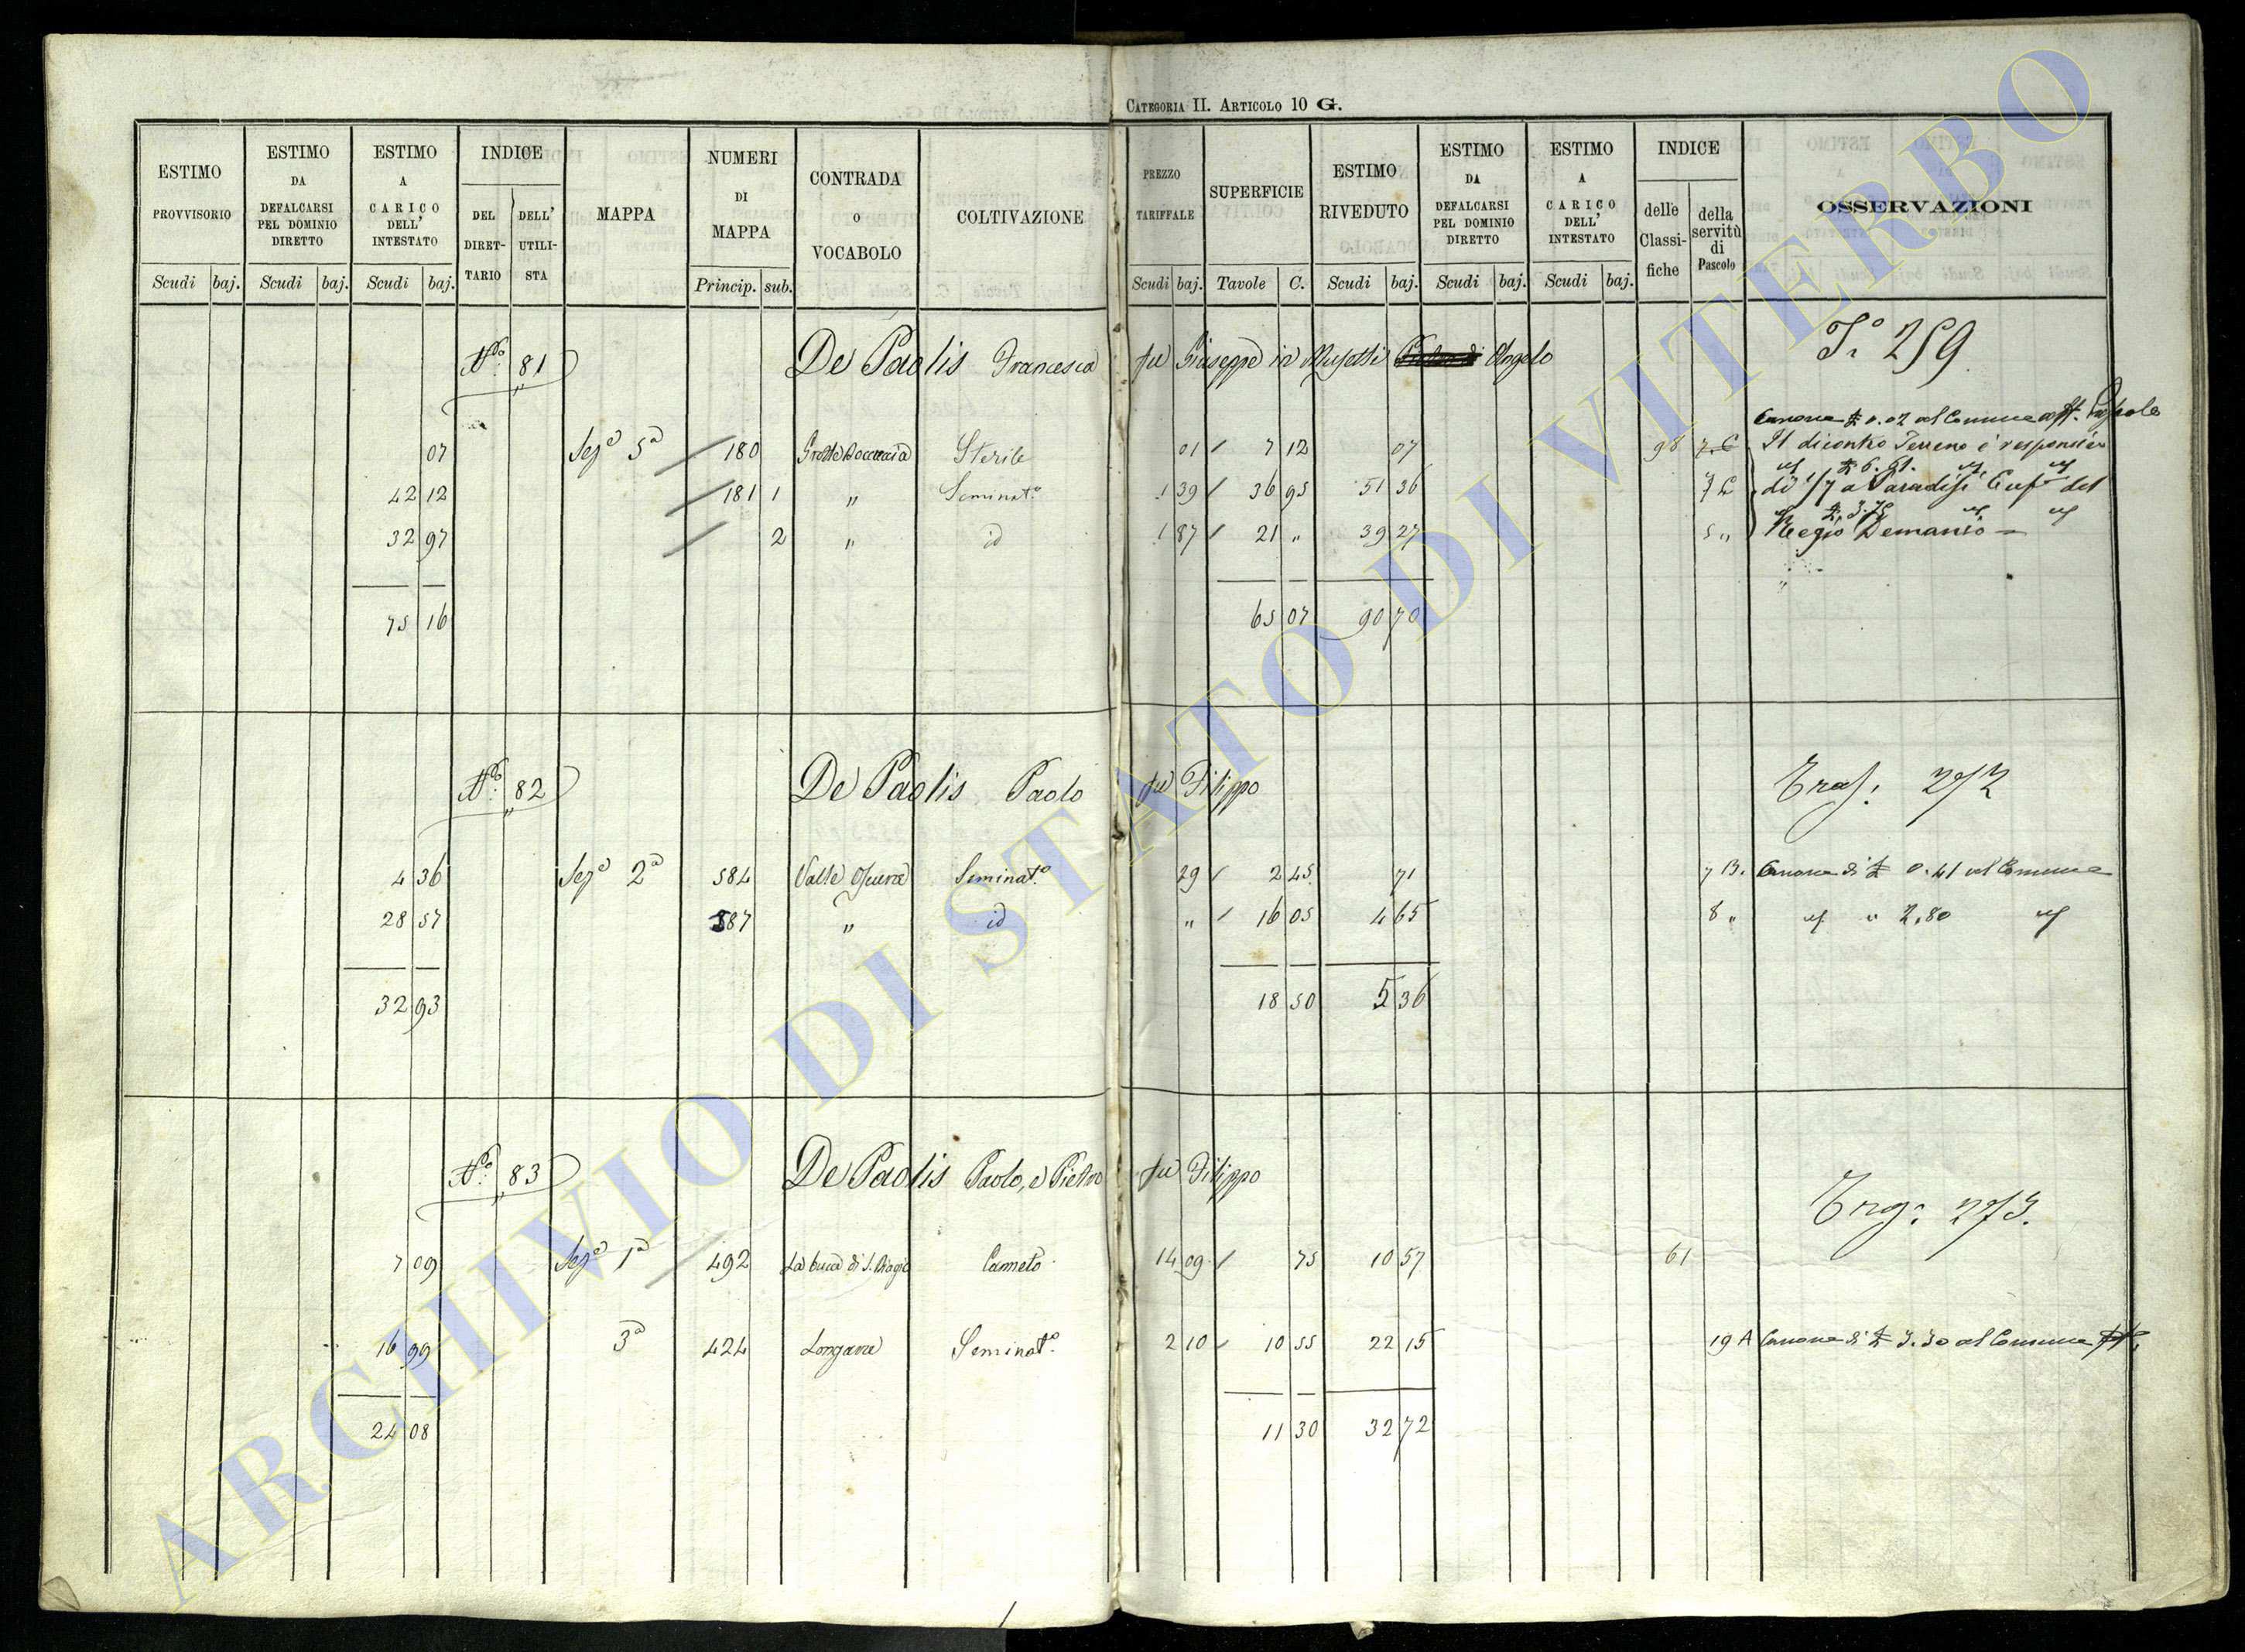 CATEGORIA II. ARTICOLO 10 G.
ESTIMO PROVVISORIO
Scudi baj.
ESTIMO DA DEFALCARSI PEL DOMINIO DIRETTO
Scudi baj.
ESTIMO A CARICO DELL' INTESTATO
Scudi baj.
INDICE
DEL DIRETTARIO
DELL' UTILISTA
MAPPA
NUMERI DI MAPPA
Princip. sub.
CONTRADA O VOCABOLO
COLTIVAZIONE
PREZZO TARIFFALE
Scudi baj.
SUPERFICIE
Tavole C.
ESTIMO RIVEDUTO
Scudi baj.
ESTIMO DA DEFALCARSI PEL DOMINIO DIRETTO
Scudi baj.
ESTIMO A CARICO DELL' INTESTATO
Scudi baj.
INDICE
delle Classifiche
della servitù di Pascolo
OSSERVAZIONI
Nº. 81 De Paolis Francesca fu Giuseppe in Angelo
T.º 259
Canone 0.02 al Comune
07 Sezª 5ª 180 Sterile 01 7 12 07 98 7. C Il dicontro Terreno è responsivo
42 12 181 1 " Seminatº 1 39 36 95 51 36 7 C di 1/7 a Paradisi del
32 97 2 " id 1 87 21 " 39 27 5 " Regio Demanio —
75 16 65 07 90 70
Nº. 82 De Paolis Paolo fu Filippo
272
4 36 Sezª 2ª 584 Valle Seminatº 29 2 45 71 7 B. Canone di 0.41 al Comune
28 57 587 " id " 16 05 4 65 8 " " 2,80
32 93 18 50 5 36
Nº. 83 De Paolis Paolo, e Pietro fu Filippo
273.
7 09 Sezª 1ª 492 La buca di S. Biagio Canneto 14 09 75 10 57 61
16 99 3ª 424 Longara Seminatº 2 10 10 55 22 15 19 A Canone di 3.30 al Comune
24 08 11 30 32 72
ARCHIVIO DI STATO DI VITERBO